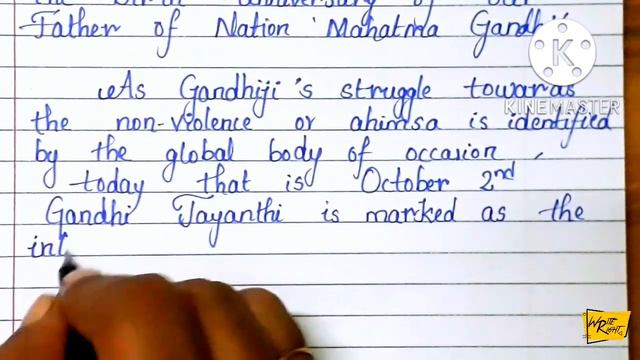 the birth anniversary of our
Father of Nation Mahatma Gandhiji
As Gandhiji's struggle towards
the non-violence or ahimsa is identified
by the global body of occasion,
today that is October 2nd
Gandhi Jayanthi is marked as the
int
K
KINEMASTER
WRITE
RIGHT